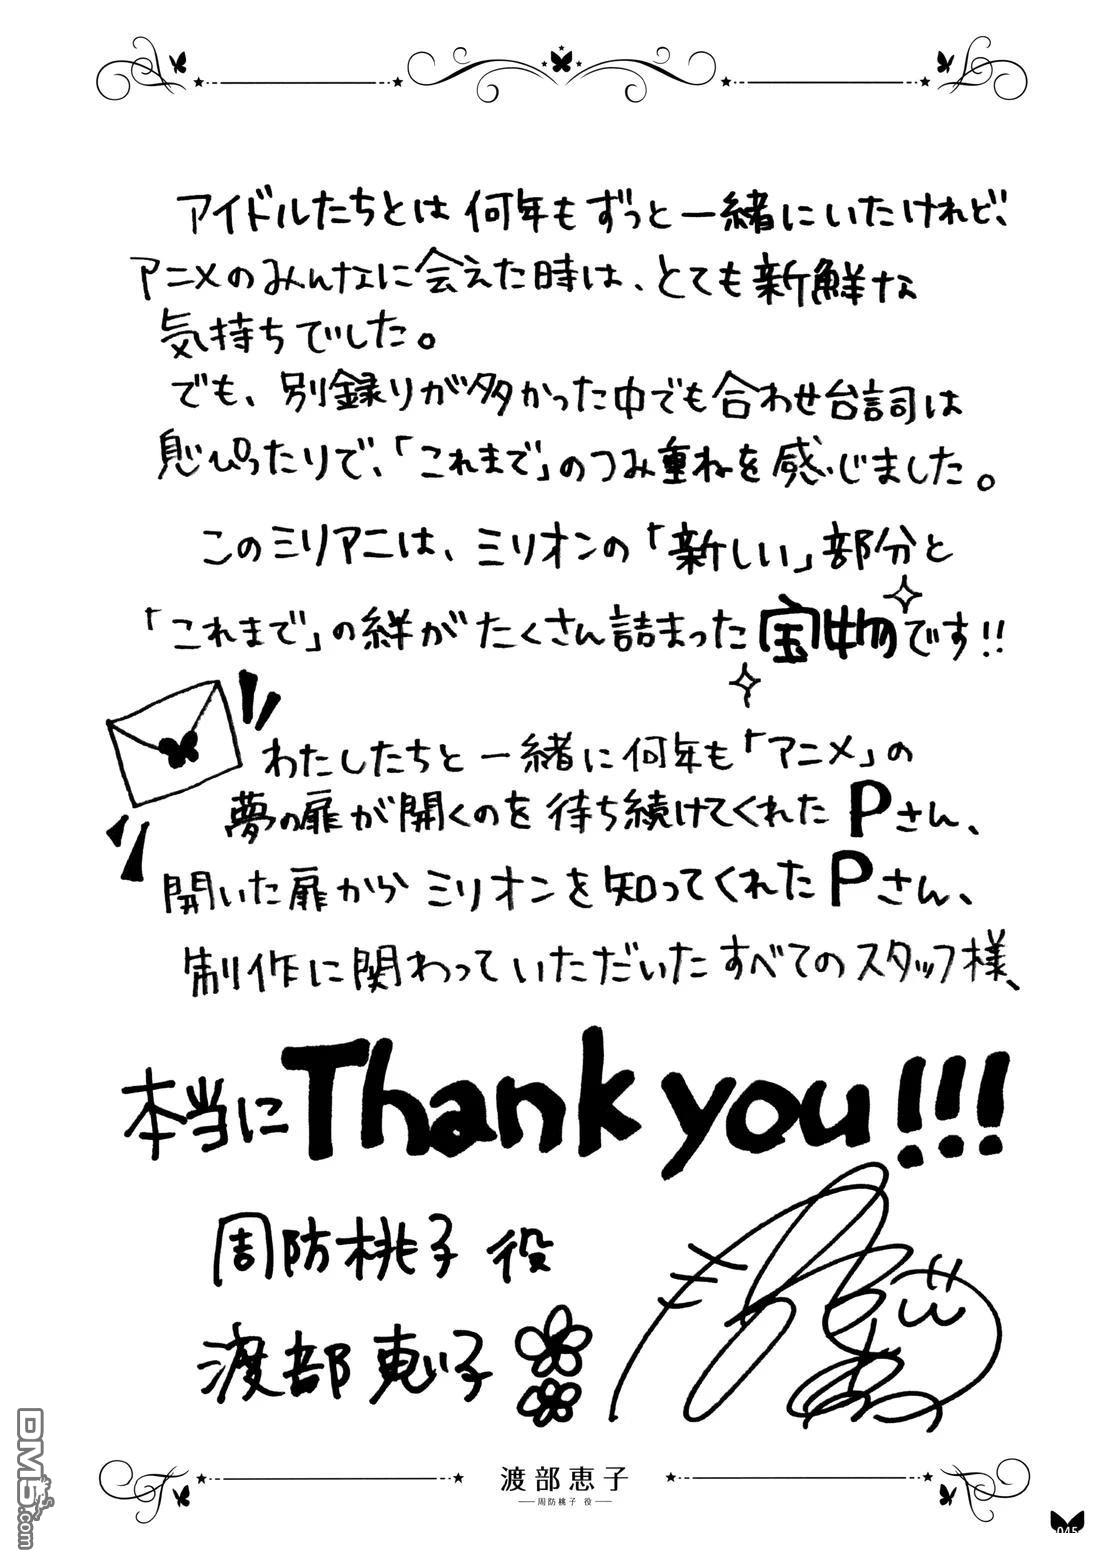 アイドルたちとは何年もずっと一緒にいたけれど、
アニメのみんなに会えた時は、とても新鮮な
気持ちでした。
でも、別録りが多かった中でも合わせ台詞は
息ぴったりで、「これまで」のつみ重ねを感じました。
このミリアニは、ミリオンの「新しい」部分と
「これまで」の絆がたくさん詰まった宝物です!!
わたしたちと一緒に何年も「アニメ」の
夢の扉が開くのを待ち続けてくれたPさん、
開いた扉からミリオンを知ってくれたPさん、
制作に関わっていただいたすべてのスタッフ様、
本当にThank you!!!
周防桃子 役
渡部恵子
渡部恵子
周防桃子 役
045
DM5.com